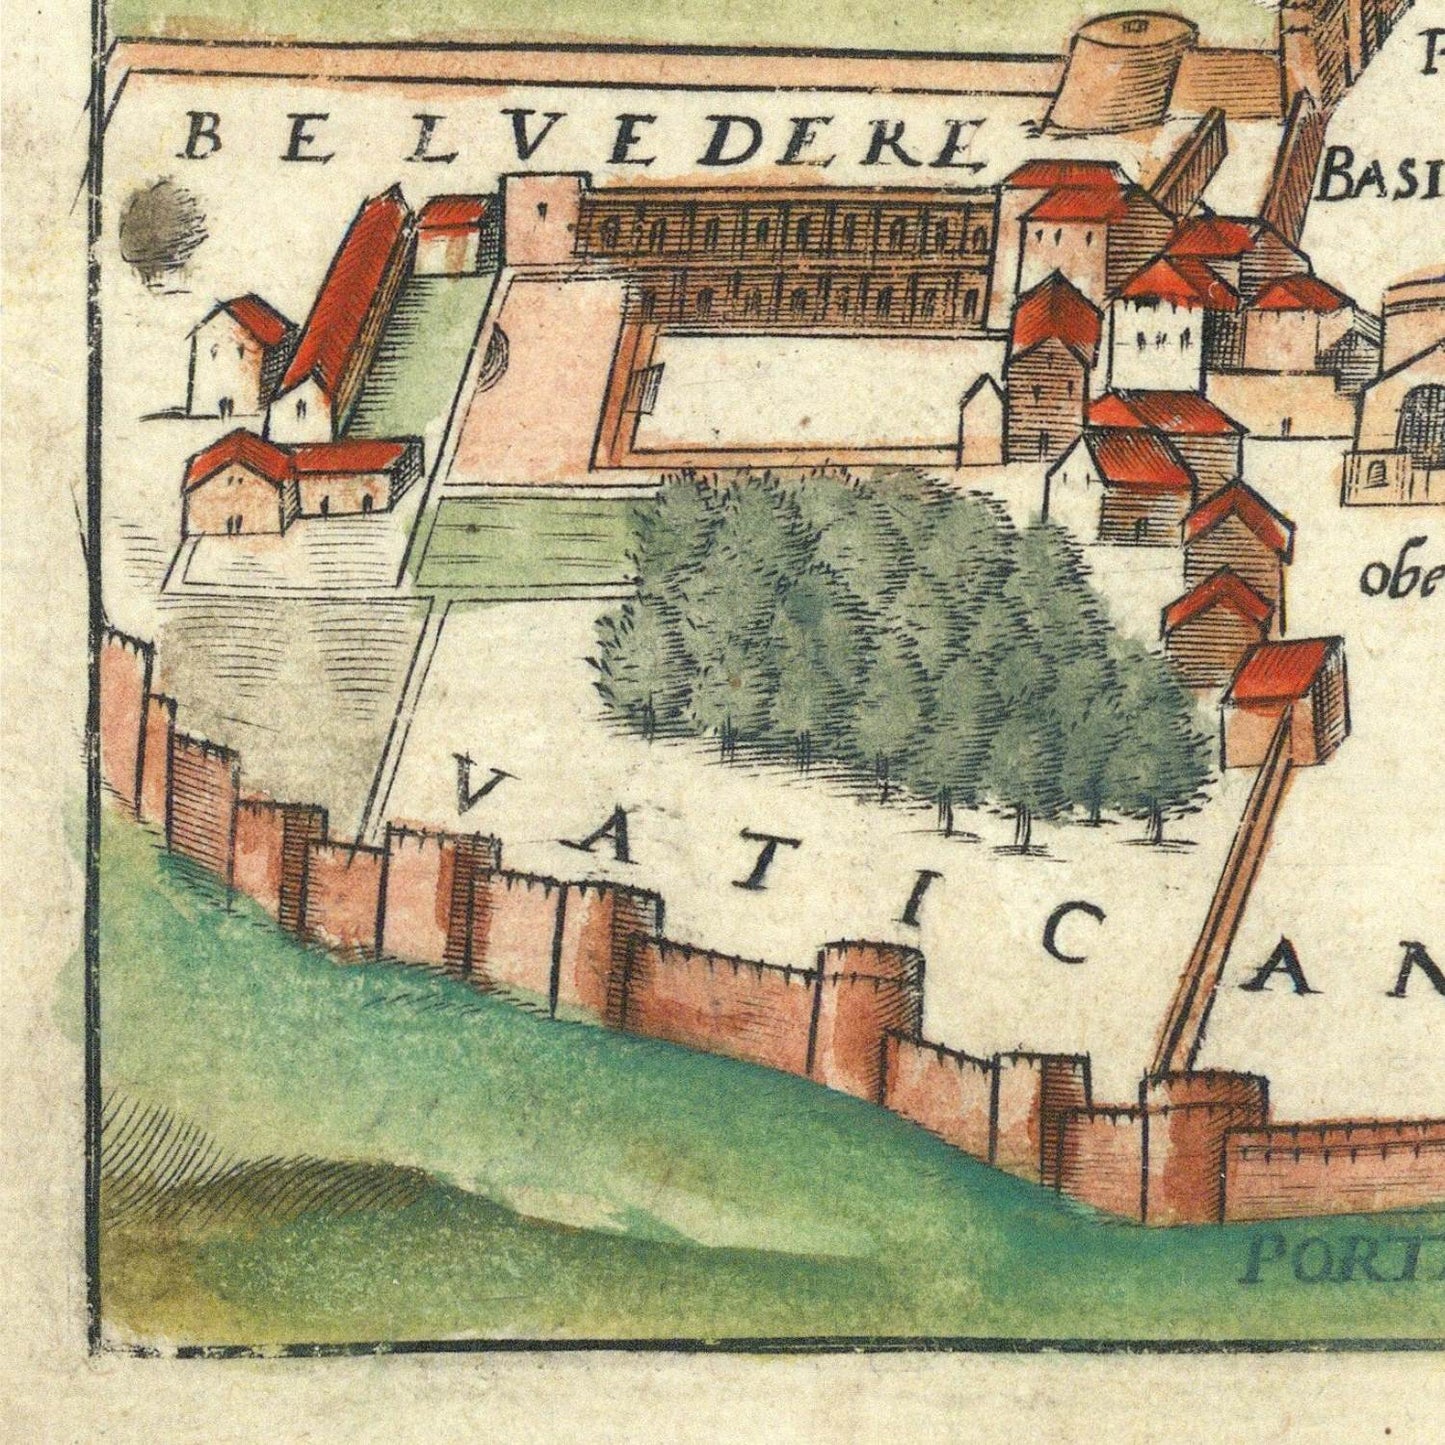 P
BELVEDERE
BASI
obe
VATICAN
PORT